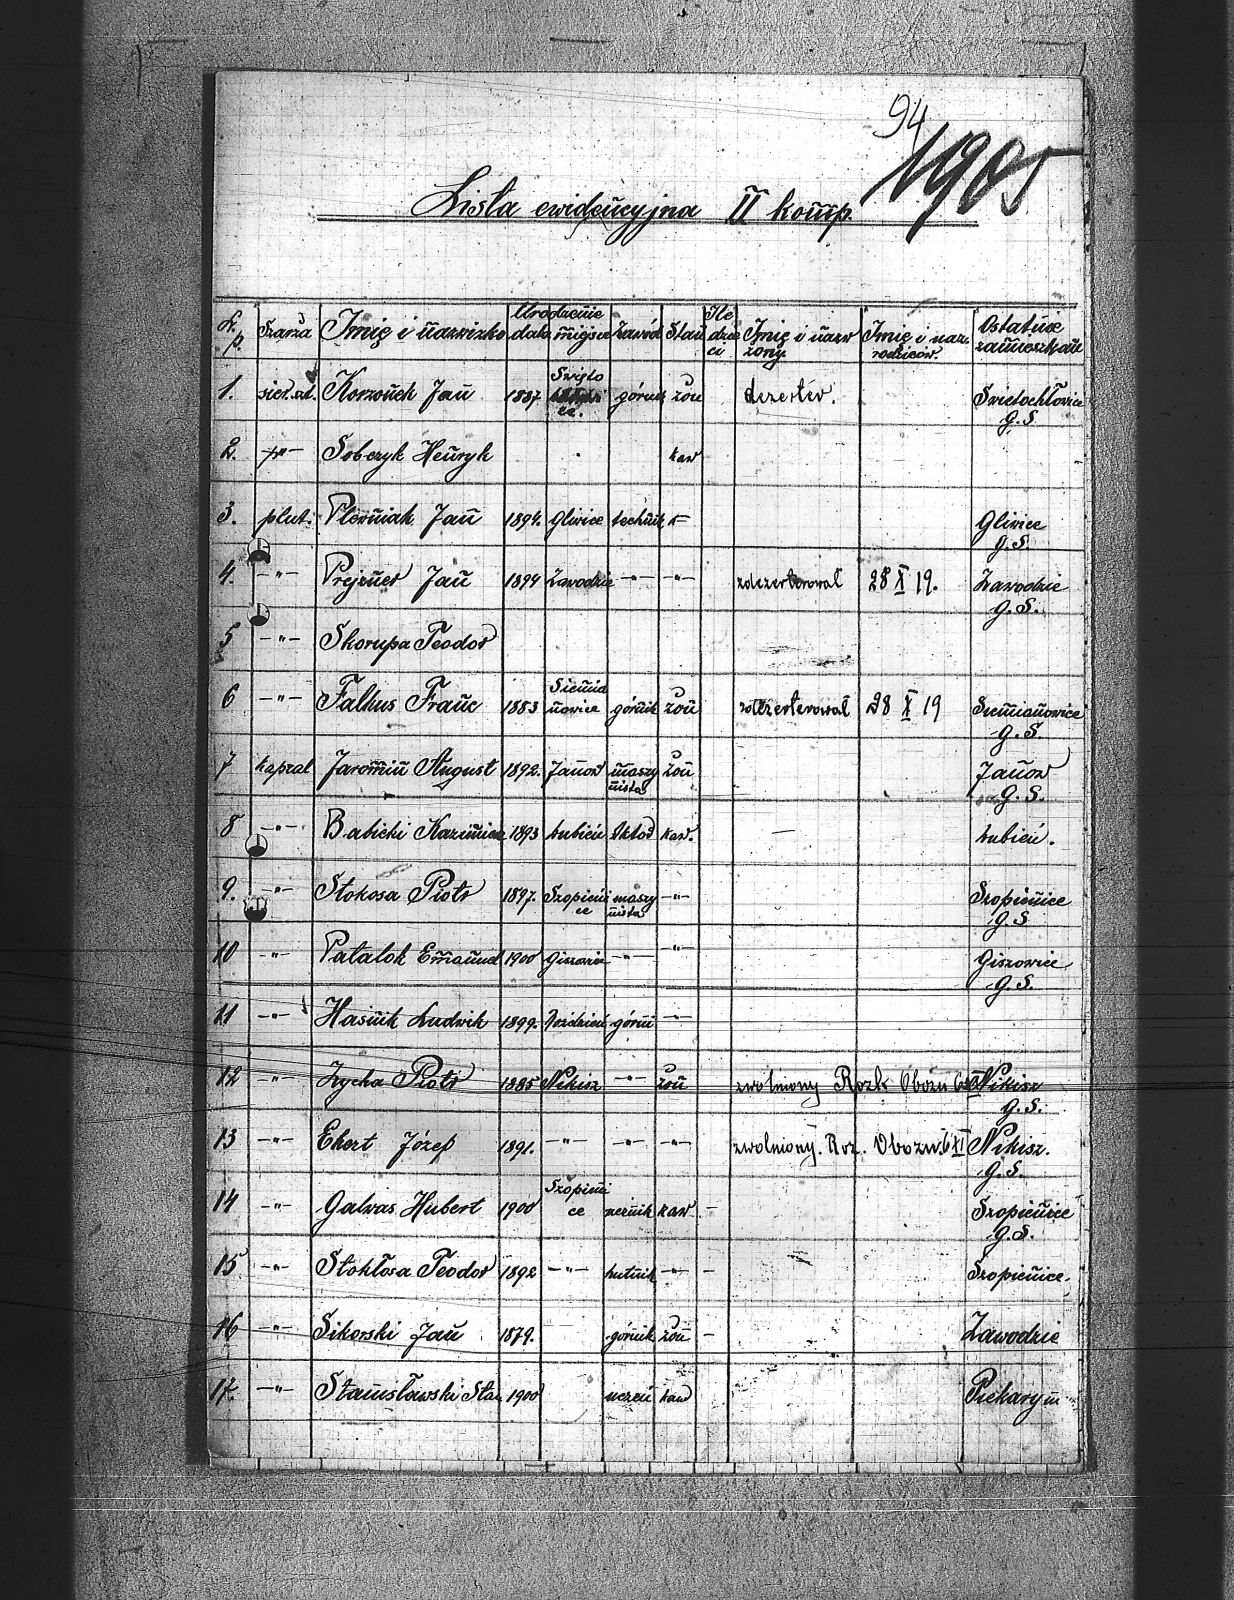 94
1905
Lista ewidencyjna II komp.
L. p. Szarża Imię i nazwizko Urodzenie data miejsce Zawód Stan Ile dzieci Imię i nazw żony Imię i naz. rodziców Ostatnie zamieszkan
1. sier. szt. Korzonek Jan 1887 Święto ce. górnik żon dezerter. Świetochłowice g. S.
2. -"- Sobczyk Henryk kaw
3. plut. Plewniak Jan 1894. Gliwice technik k- Gliwice g. S.
4. -"- Prejsner Jan 1894 Zawodzie -"- -"- zdezerterował 28 X 19. Zawodzie g. S.
5 -"- Skorupa Teodor
6 -"- Falkus Franc 1883 Siemianowice górnik żon zdezerterował 28 X 19 Siemianowice g. S.
7 kapral Jaromin August 1892. Janow maszynista żon Janow g. S.
8 -"- Babicki Kazimierz 1893 Łubień kaw. - Łubień.
9. -"- Stokosa Piotr 1897. Szopienice maszynista -"- Szopienice g. S
10 -"- Patalok Emanuel 1900 Giszowice -"- -"- Giszowice g. S.
11 -"- Hasnik Ludwik 1899. Rozdzień górni -"-
12 -"- Zycha Piotr 1885 Nikisz -"- żon zwolniony Rozk Obozu Nikisz g. S.
13 -"- Ekert Józef 1891. -"- -"- -"- zwolniony. Roz. Obozu. 6 XI Nikisz. g. S.
14 -"- Galwas Hubert 1900 Szopienice kaw - Szopienice g. S.
15 -"- Stokłosa Teodor 1892 -"- hutnik -"- - Szopienice.
16 -"- Sikorski Jan 1879. górnik żon - Zawodzie
17. -"- Stanisławski Stan 1900 uczeń kaw Piekary